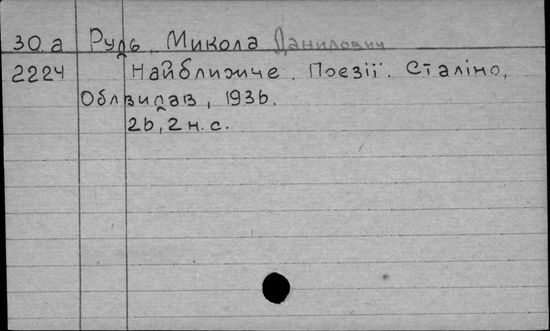 30.а Рудь, Микола Данилович
2224 Найближче. Поезії. Сталіно,
Облвидав, 1936.
26, 2 н. с.